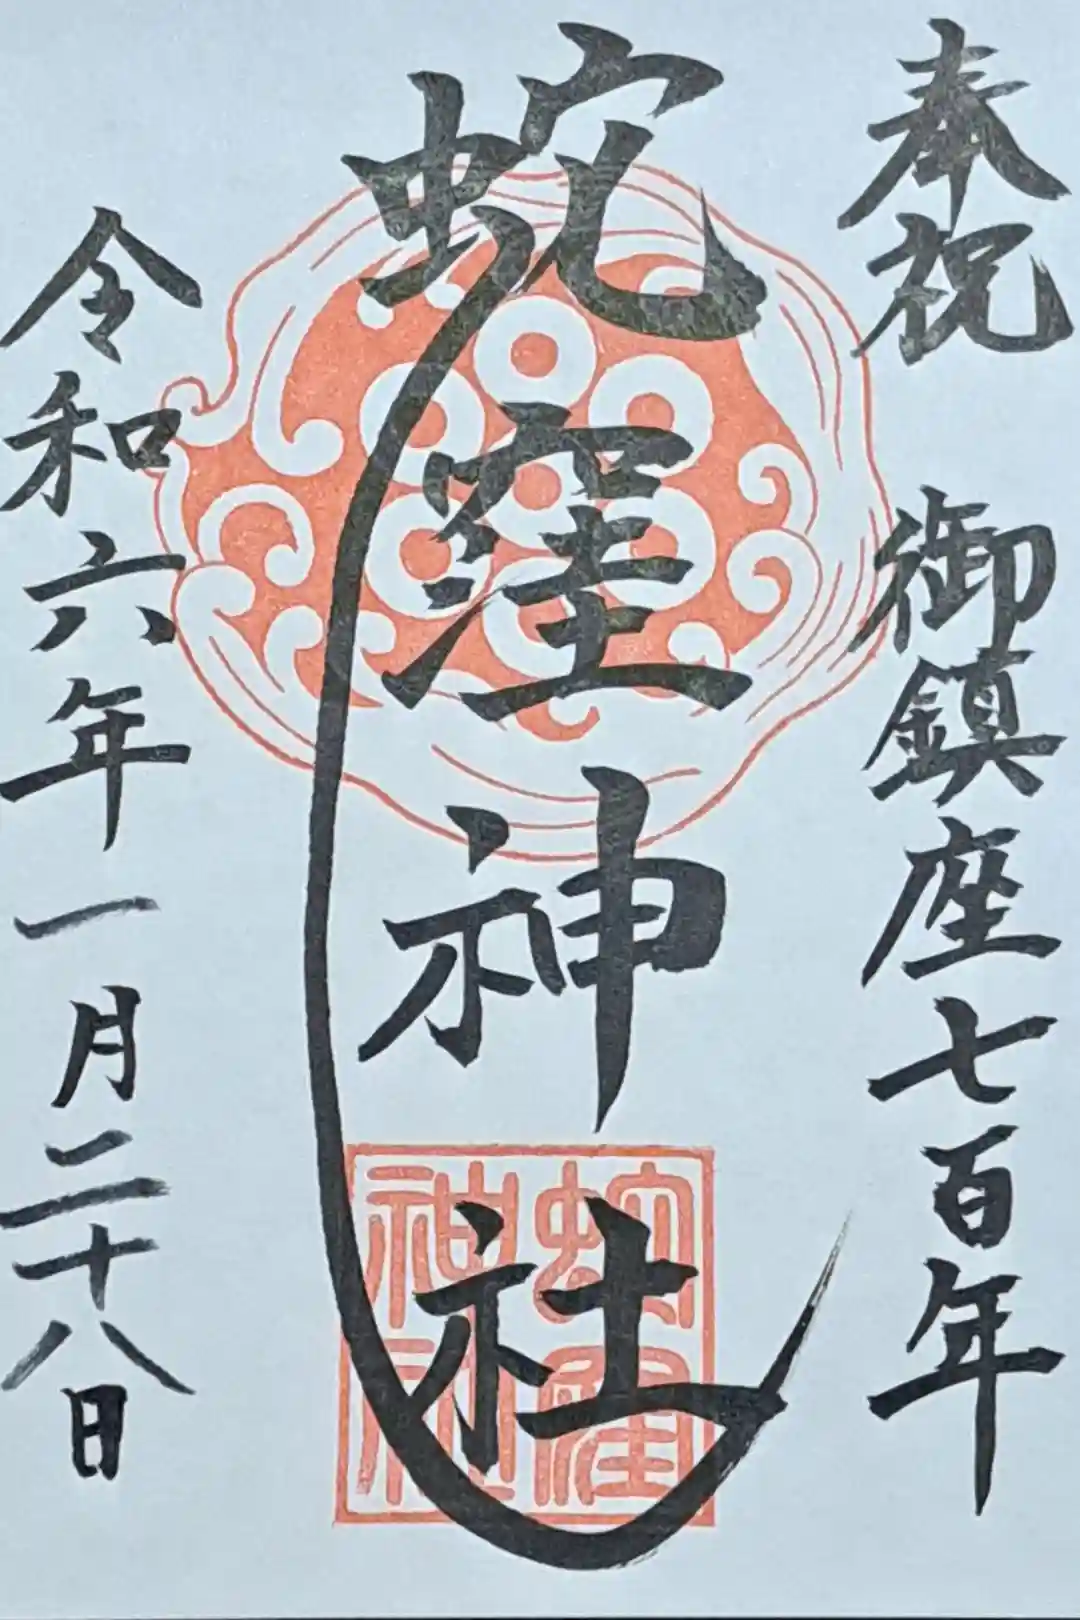 奉祝 御鎮座七百年
蛇窪神社
蛇窪
神社
令和六年一月二十八日